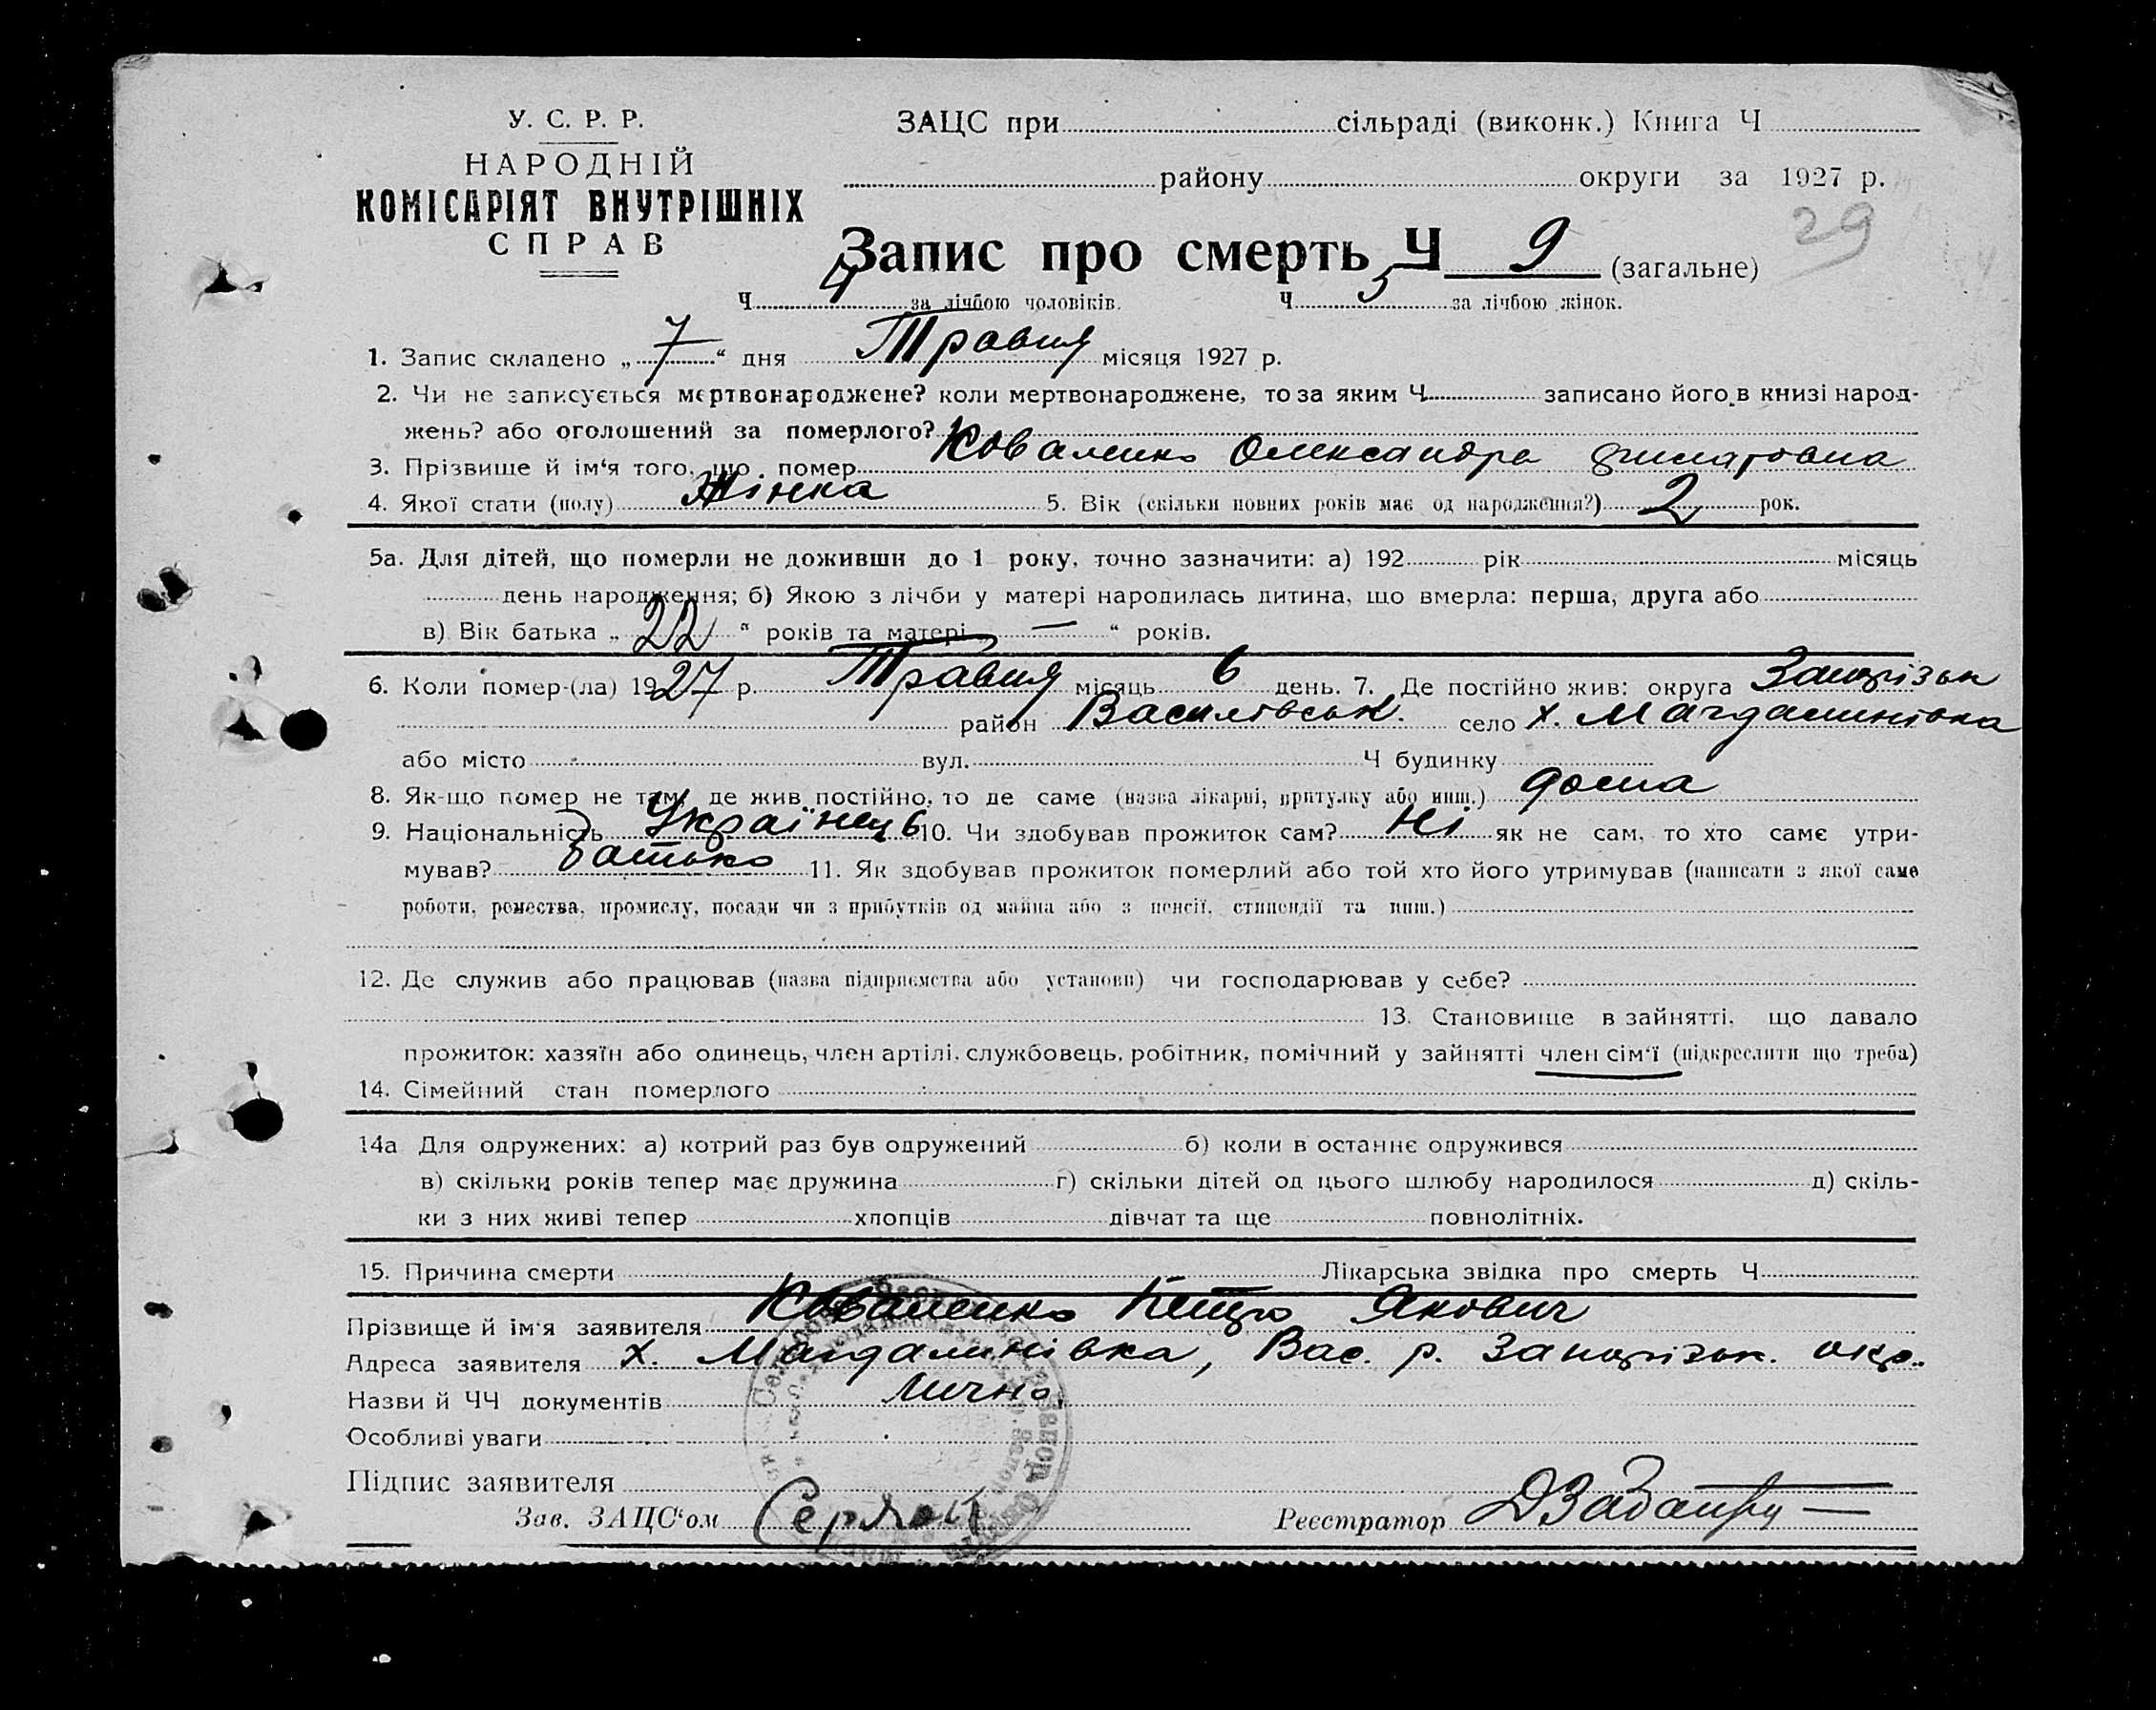 У. С. Р. Р.
НАРОДНІЙ
КОМІСАРІЯТ ВНУТРІШНІХ
СПРАВ
ЗАЦС при сільраді (виконк.) Книга Ч
району округи за 1927 р.
29
Запис про смерть Ч 9 (загальне)
Ч 4 за лічбою чоловіків. Ч 5 за лічбою жінок.
1. Запис складено „ 7 “ дня Травня місяця 1927 р.
2. Чи не записується мертвонароджене? коли мертвонароджене, то за яким Ч записано його в книзі народ-
жень? або оголошений за померлого?
3. Прізвище й ім‘я того, що помер Коваленко Олександра
4. Якої стати (полу) Жінка 5. Вік (скільки повних років має од народження?) 2 рок.
5а. Для дітей, що померли не доживши до 1 року, точно зазначити: а) 192 рік місяць
день народження; б) Якою з лічби у матері народилась дитина, що вмерла: перша, друга або
в) Вік батька „ 22 “ років та матері „ — “ років.
6. Коли помер-(ла) 1927 р. Травня місяць 6 день. 7. Де постійно жив: округа Запорізьк
район Василівськ. село х. Магдалинівка
або місто вул. Ч будинку
8. Як-що помер не там, де жив постійно, то де саме (назва лікарні, притулку або инш.) дома
9. Національність Українець 10. Чи здобував прожиток сам? Ні як не сам, то хто саме утри-
мував? Батько 11. Як здобував прожиток померлий або той хто його утримував (написати з якої саме
роботи, ремества, промислу, посади чи з прибутків од майна або з пенсії, стипендії та инш.)
12. Де служив або працював (назва підприємства або установи) чи господарював у себе?
13. Становище в зайнятті, що давало
прожиток: хазяїн або одинець, член артілі, службовець, робітник, помічний у зайнятті член сім‘ї (підкреслити що треба)
14. Сімейний стан померлого
14а Для одружених: а) котрий раз був одружений б) коли в останнє одружився
в) скільки років тепер має дружина г) скільки дітей од цього шлюбу народилося д) скіль-
ки з них живі тепер хлопців дівчат та ще повнолітніх.
15. Причина смерти Лікарська звідка про смерть Ч
Прізвище й ім‘я заявителя Коваленко Петро Якович
Адреса заявителя х. Магдалинівка, Вас. р. Запорізьк. окр.
Назви й ЧЧ документів Лично
Особливі уваги
Підпис заявителя
Зав. ЗАЦС‘ом
Реєстратор